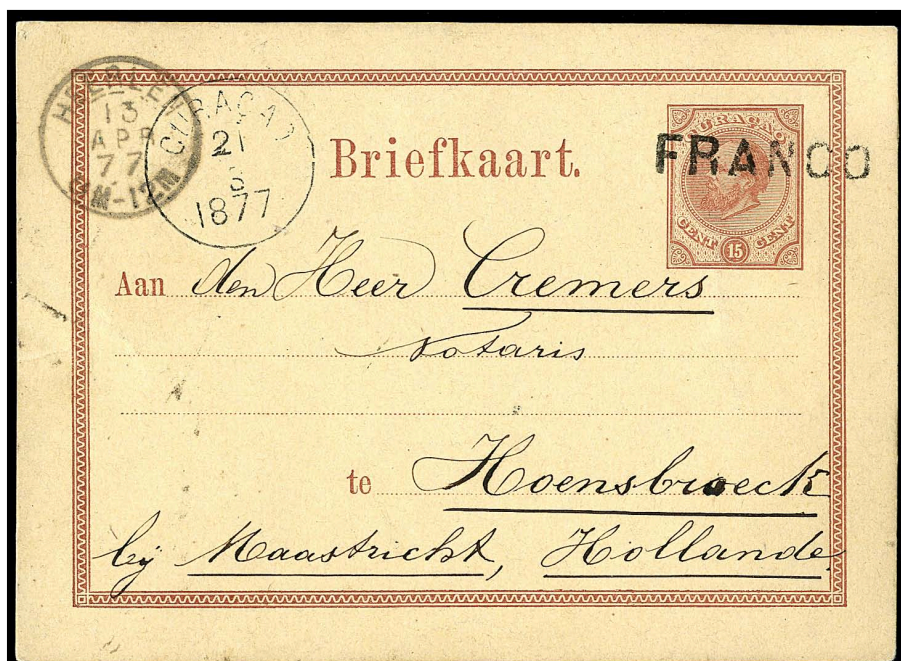 HEERLEN
13
APR
77
M-12M
CURAÇAO
21
3
1877
Briefkaart.
CURAÇAO
FRANCO
CENT 15 CENT
Aan den Heer Cremers
Notaris
te Hoensbroeck
bij Maastricht, Hollande.